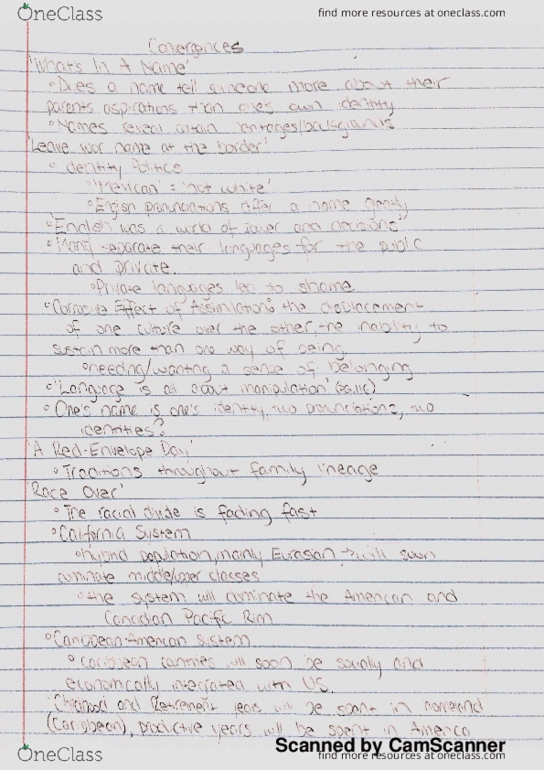 OneClass
find more resources at oneclass.com
Convergences
'What's In A Name'
°Does a name tell someone more about their
parents aspirations than ones own identity
°Names reveal certain heritages/backgrounds
'Leave your name at the border'
°identity Politics
°'Mexican' = 'not white'
°English pronunciations differ a name greatly
°"English was a world of power and decisions"
°Many separate their languages for the public
and private.
°Private languages led to shame
°Corrosive Effect of Assimilation: the displacement
of one culture over the other, the inability to
sustain more than one way of being
°needing/wanting a sense of belonging
°"Language is all about manipulation"
°One's name is one's identity, two pronunciations, two
identities?
'A Red-Envelope Day'
°Traditions throughout family lineage
'Race Over'
°The racial divide is fading fast
°California System
°hybrid population, mainly Eurasian → will soon
dominate middle/upper classes
°the system will dominate the American and
Canadian Pacific Rim
°Caribbean-American System
°Caribbean countries will soon be socially and
economically integrated with US.
Childhood and Retirement years will be spent in homeland
(Caribbean), productive years will be spent in America
Scanned by CamScanner
OneClass
find more resources at oneclass.com